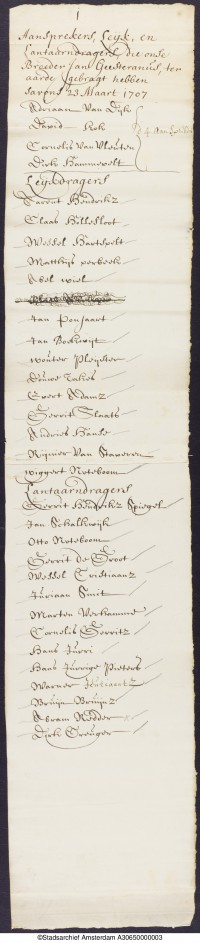 Aansprekers, Leyk, en
Lantaarndragers, die onse
Broeder Jan Geesteranus, ter
aarde gebragt hebben
23 Maart 1707
Adriaan Van Dijk
David Kok
Cornelis Van Vleuten
Dirk Hammevelt
Leykdragers
Barent Hendrikz
Claas Hillesloot
Wessel Hartevelt
Matthijs verbeek
Abel wiel
Jan Ponjaart
Jan Bockwijt
wouter Pleyster
Douwe Takes
Evert Adamz
Gerrit Slaats
Andries Hanse
Reynier Van Staveren
wiggert Noteboom
Lantaarndragers
Gerrit Hendrikz Spiegel
Jan Schalkwijk
Otto Noteboom
Gerrit De Groot
Wessel Cristiaanz
Juriaan Smit
Marten Verhamme
Cornelis Gerritz
Hans Jurri
Hans Jurrige Pieters
Warner
Bruyn Bruynz
Abram Ridder
Dirk Creuger
©Stadsarchief Amsterdam A30650000003